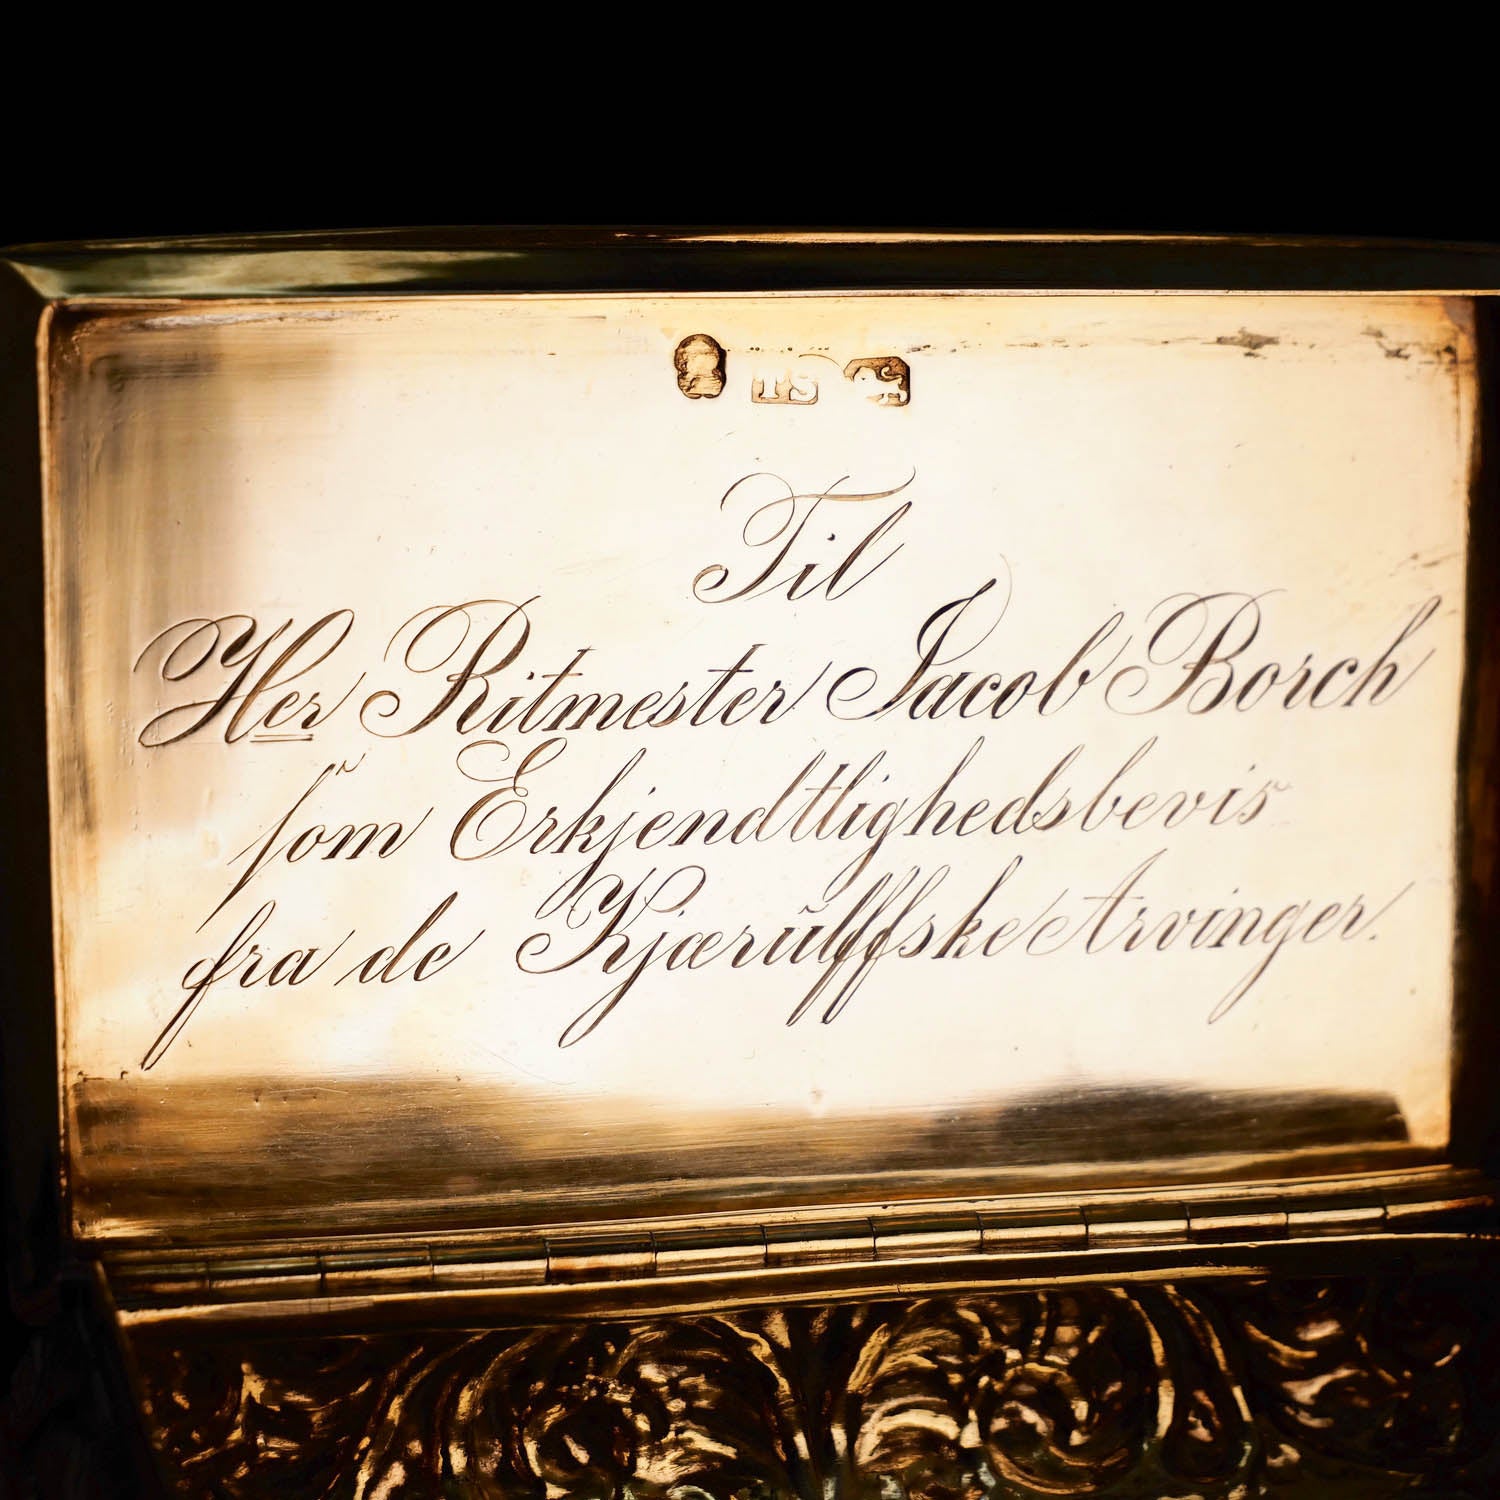 TS
Til
Her Ritmester Jacob Borch
som Erkjendtlighedsbevis
fra de Kjærŭlffske Arvinger.